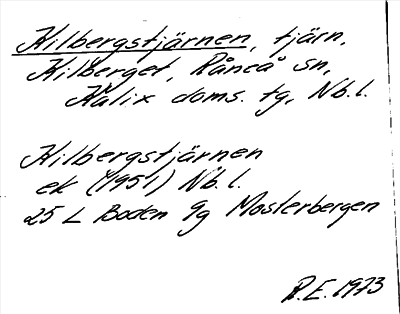 Kilbergstjärnen, tjärn,
Kilberget, Råneå sn,
Kalix doms. tg, Nb.l.
Kilbergstjärnen
ek (1951) Nb.l.
25 L Boden 9g Mosterbergen
R.E. 1973